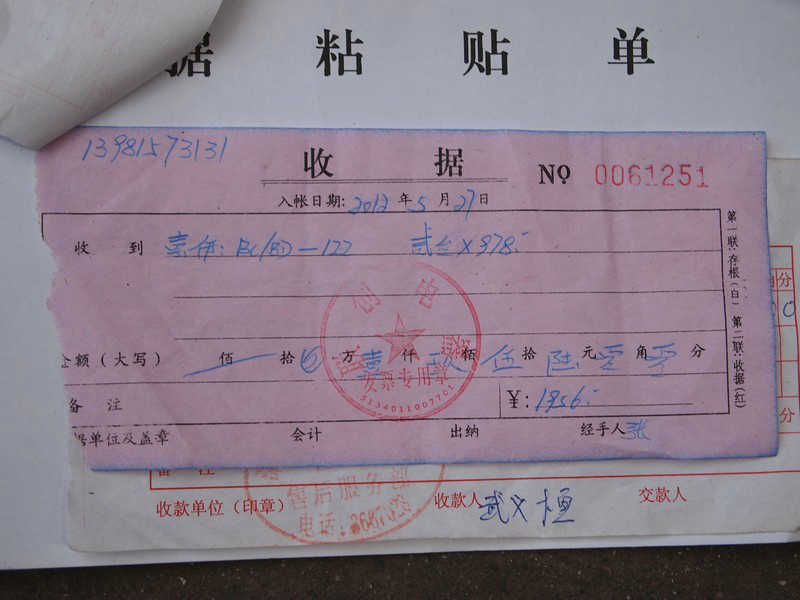 据 粘 贴 单
13981573131
收 据 № 0061251
入帐日期: 2012 年 5 月 27 日
收 到 BC/BD-122 贰台×978
金额(大写) 佰 拾 万 壹 仟 玖 佰 伍 拾 陆 元 零 角 零 分
备 注 ¥: 1956
据单位及盖章 会计 出纳 经手人 张
第一联:存根(白) 第二联:收据(红)
发票专用章
5134011007701
分
0
分
备 注
售后服务部
电话:
收款单位(印章) 收款人 武义桓 交款人